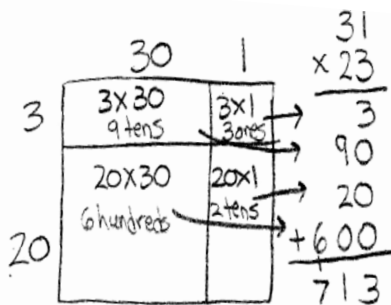 30 1
3
3x30
9 tens
3x1
3 ones
20
20x30
6 hundreds
20x1
2 tens
31
x 23
3
90
20
+600
713